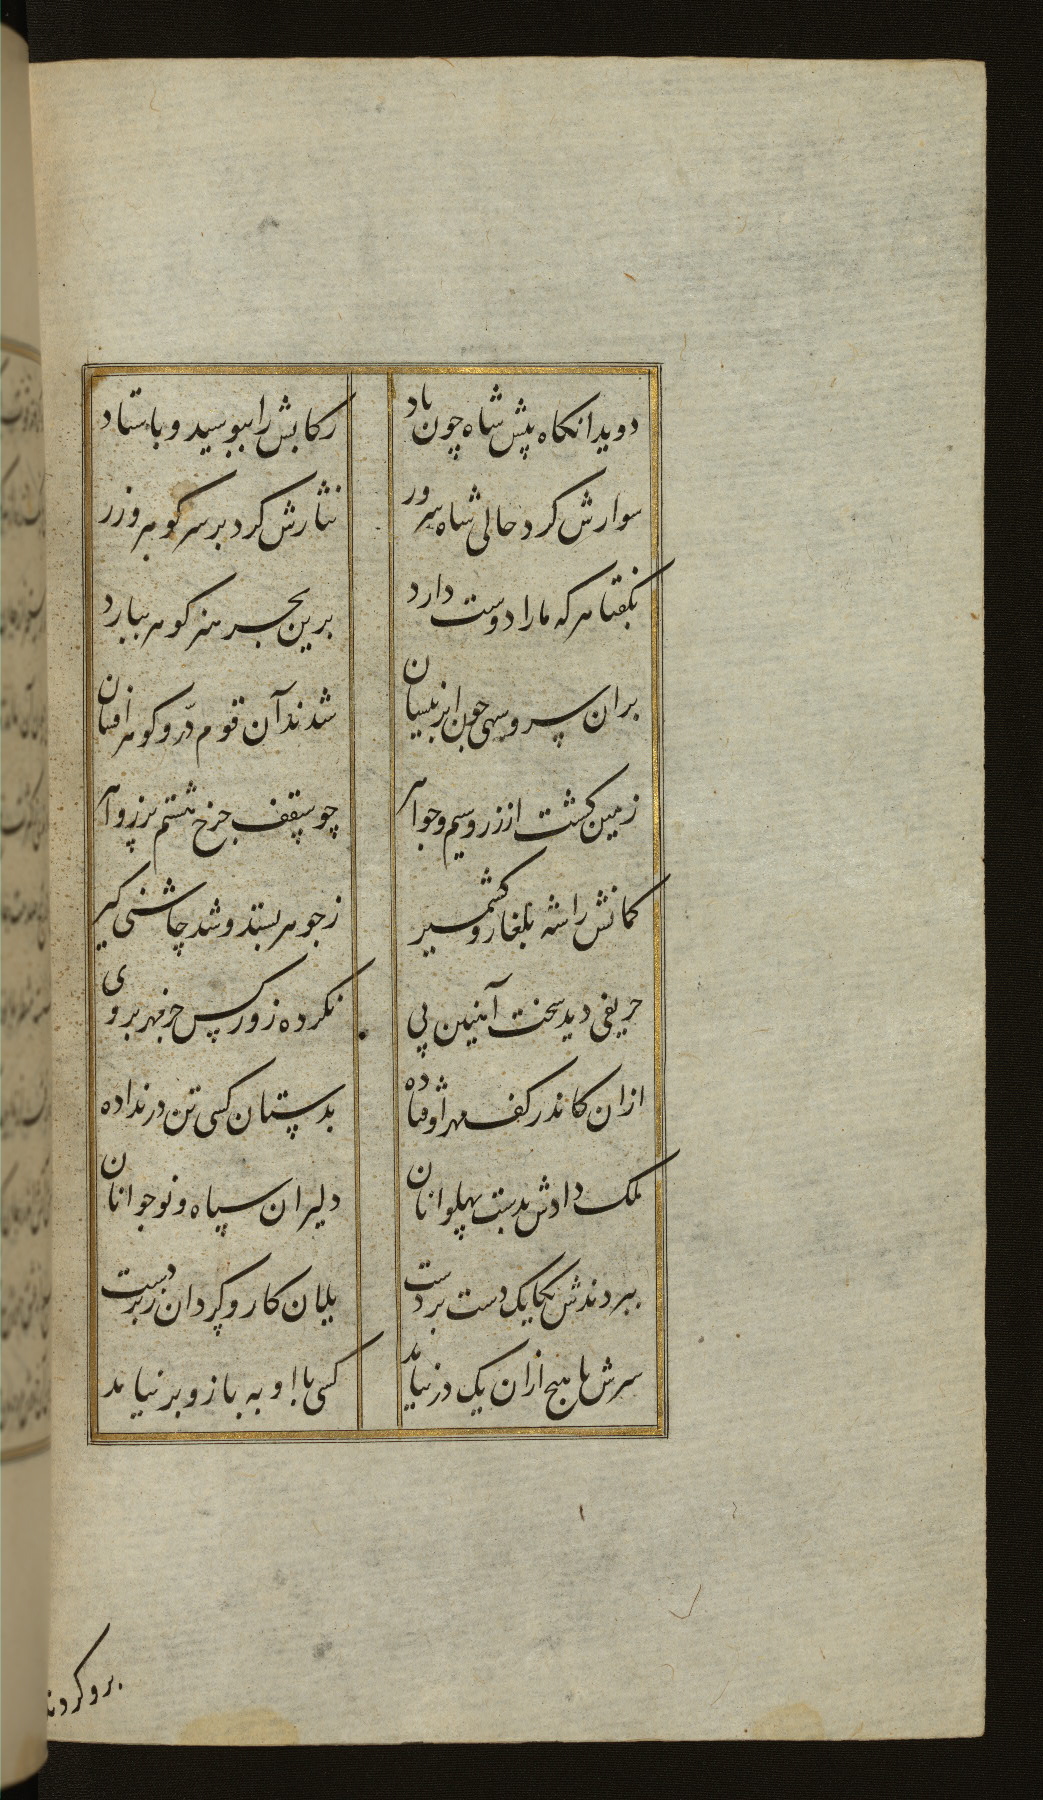 دوید انکاه پیش شاه چون باد رکابش را ببوسید و باستاد
سوارش کرد حالی شاه سرور نثارش کرد بر سر کوهر و زر
بگفتا هر که ما را دوست دارد برین بحر هنر کوهر ببارد
بران سرو سهی چون ابر نیسان شدند آن قوم در و کوهر افشان
زمین کشت از زر و سیم و جواهر چو سقف چرخ هشتم پر زواهر
کمانش را شه بلغار و کشمیر ز جوهر بستد و شد چاشنی کیر
حریفی دید سخت آهنین پی نکرده زور کس جز مهر بر وی
ازان کاندر کف مهر اوفتاده بدستان کسی تن در نداده
ملک دادش بدست پهلوانان دلیران سپاه و نوجوانان
ببردندش یکایک دست بر دست یلان کار و کردان زبردست
سرش با هیچ ازان یک در نیامد کسی با او به بازو بر نیامد
برو کردند